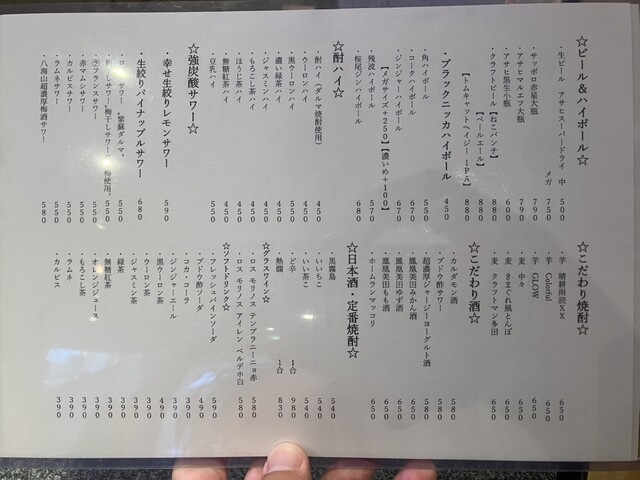 ☆ビール＆ハイボール☆
・生ビール アサヒスーパードライ 中 500
メガ 750
・サッポロ赤星大瓶 790
・アサヒマルエフ大瓶 790
・アサヒ黒生小瓶 600
・クラフトビール【ねこパンチ】 880
【ペールエール】 880
【トムキャットヘイジーIPA】 880
・ブラックニッカハイボール 450
・角ハイボール 550
・コークハイボール 670
・ジンジャーハイボール 670
【メガサイズ＋250】【濃いめ＋100】
・残波ハイボール 570
・桜尾ジンハイボール 680
☆酎ハイ☆
・酎ハイ（ダルマ焼酎使用） 450
・ウーロンハイ 450
・黒ウーロンハイ 550
・濃い緑茶ハイ 450
・ジャスミンハイ 450
・もろこし茶ハイ 450
・ほうじ茶ハイ 450
・無糖紅茶ハイ 450
・豆乳ハイ 550
☆強炭酸サワー☆
・幸せ生絞りレモンサワー 590
・生絞りパイナップルサワー 680
サワー 紫蘇ダルマ。 550
梅干しサワー 梅使用。 550
・ラフランスサワー 550
・赤マムシサワー 550
・カルピスサワー 550
・ラムネサワー 550
・八海山超濃厚梅酒サワー 580
☆こだわり焼酎☆
・芋 晴耕雨読XX 650
・芋 Colorful 650
・芋 GLOW 650
・麦 中々 650
・麦 きまぐれ風とんぼ 650
・麦 クラフトマン多田 650
☆こだわり酒☆
・カルダモン酒 580
・ブドウ酢サワー 580
・超濃厚ジャージーヨーグルト酒 580
・鳳凰美田みかん酒 650
・鳳凰美田ゆず酒 650
・鳳凰美田もも酒 650
・ホームランマッコリ 650
☆日本酒・定番焼酎☆
・黒霧島 540
・いいちこ 540
・いい茶こ 540
・ど辛 1合 980
・熱燗 1合 830
☆グラスワイン☆
・ロス モリノス テンプラニーニョ赤 580
・ロス モリノス アイレン ベルデホ白 580
☆ソフトドリンク☆
・フレッシュパインソーダ 590
・ブドウ酢ソーダ 490
・コカ・コーラ 390
・ジンジャーエール 390
・黒ウーロン茶 490
・ウーロン茶 390
・ジャスミン茶 390
・緑茶 390
・無糖紅茶 390
・オレンジジュース 390
・もろこし茶 390
・ラムネ 390
・カルピス 390